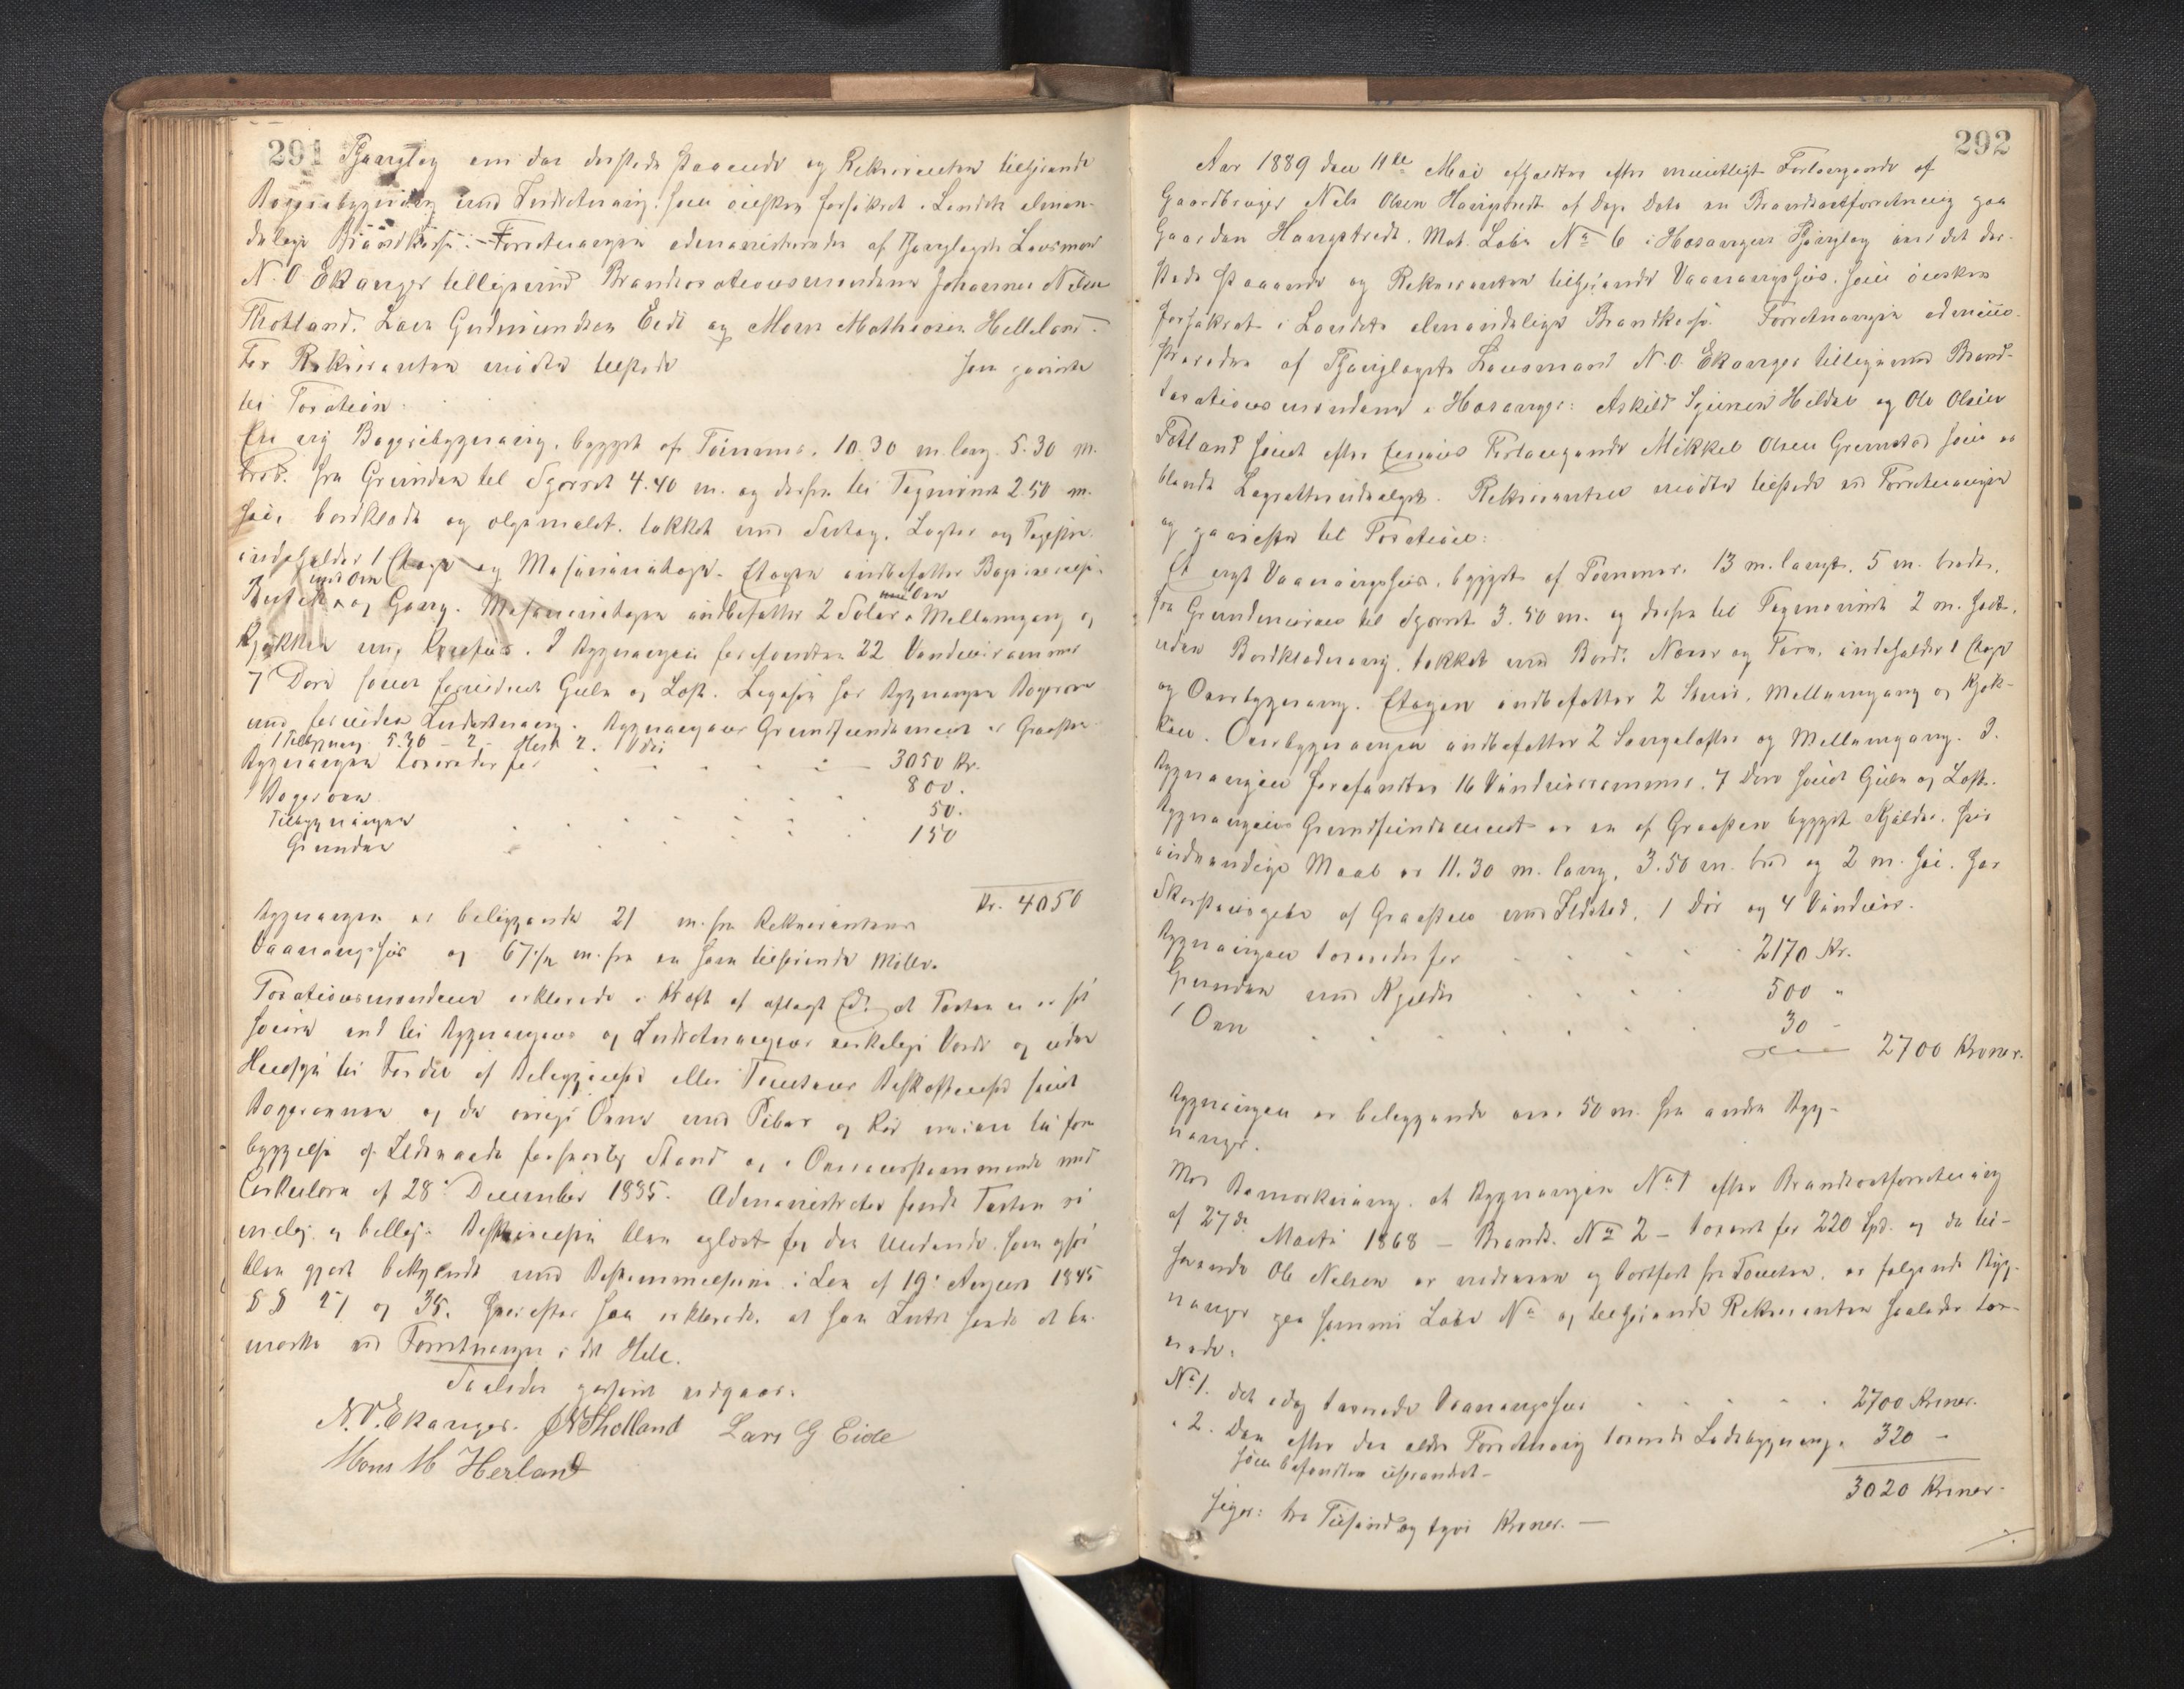 291 Thinglag om den dersteds staaende og Rekvirenten tilhørende
Bageribygning med Indretning, som ønskes forsikret i Landets almin-
delige Brandkasse. Forretningen administreredes af Thinglagets Lensmand
N. O. Ekanger tilligemed Brandtaxationsmændene Johannes Nilsen
Tholland, Lars Gudmundsen Eide og Mons Mathiesen Helleland.
For Rekvirenten mødte tilstede som paaviste
til Taxation:
En ny Bageribygning, bygget af Tømmer, 10.30 m. lang, 5.30 m.
bred, fra Grunden til Gesimset 4.40 m. og derfra til Tagmønet 2.50 m.
høi, bordklædt og oljemalet, tækket med Sutag, Lægter og Tagsten
indeholder 1 Etage og Mesaninetage. Etagen indbefatter Bagerværelse,
Butik med Ovn og Gang. Mesaninetagen indbefatter 2 Stuer, Mellemgang og
Kjøkken med Komfur. I Bygningen forefandtes 22 Vinduesrammer
7 Døre samt fornødent Gulv og Loft. Ligesaa har Bygningen Bagerovn
med fornøden Indretning. Bygningens Grundfundament er Graasten
1 Tilbygning 5.30 - 2, Høi 2. 1 Dør
Bygningen taxeredes for 3050 Kr.
1 Bagerovn 800.
Tilbygningen 50.
Grunden 150
Kr. 4050
Bygningen er beliggende 21 m. fra Rekvirentens
Vaaningshus og 67½ m. fra en ham tilhørende Mølle.
Taxationsmændene erklærede i Kraft af aflagt Ed, at Taxten er sat
saavel ud til Bygningens og Indretningens virkelige Værdi og uden
Hensyn til Fordel af Beliggenhed eller Tomtens Beskaffenhed samt
Bagerovnen og de øvrige Ovne med Piber og Rør ansaaes til fore-
byggelse af Ildsvaade forsvarlig Stand og i Overensstemmelse med
Cirkulære af 28de December 1835. Administrator fandt Taxten ri-
melig og billig. Beskrivelsen blev oplæst for de Vedkommende, som ogsaa
blev gjort bekjendt med Bestemmelserne i Lov af 19de August 1845
§§ 27 og 35. Hvorefter han erklærede, at han Intet havde at be-
mærke ved Forretningen i det Hele.
Saaledes passeret vedgaaes.
N. O. Ekanger. J N Tholland Lars G Eide
Mons M Herland
292
Aar 1889 den 11te Mai afholdtes efter mundtligt Forlangende af
Gaardbruger Nils Olsen Haugstvedt af Dags Dato en Brandtaxtforretning paa
Gaarden Haugstvedt, Mat. Løbe No 6 i Hosangers Thinglag over det der-
steds staaende og Rekvirenten tilhørende Vaaningshus, som ønskes
forsikret i Landets almindelige Brandkasse. Forretningen admini-
streredes af Thinglagets Lensmand N. O. Ekanger tilligemed Brand-
taxationsmændene i Hosanger: Askild Heldal og Ole Olsen
Fotland samt efter Forlangende Mikkel Olsen Grimstad som er
blandt Lagretten udvalgt. Rekvirenten mødte tilstede ved Forretningen
og paaviste til Taxation:
Et nyt Vaaningshus, bygget af Tømmer, 13 m. langt, 5 m. bredt,
fra Grundmuren til Gesimset 3.50 m. og derfra til Tagmønet 2 m. høit,
uden Bordklædning, tækket med Bord, Næver og Torv, indeholder 1 Etage
og Overbygning. Etagen indbefatter 2 Stuer, Mellemgang og Kjøk-
ken. Overbygningen indbefatter 2 Sengelofter og Mellemgang. I
Bygningen forefandtes 16 Vinduesrammer, 7 Døre samt Gulv og Loft.
Bygningens Grundfundament er en af Graasten bygget Kjælder, hvis
indvendige Maal er 11.30 m. lang, 3.50 m. bred og 2 m. høi, har
Skorstenspibe af Graasten med Ildsted, 1 Dør og 4 Vinduer.
Bygningen taxeredes for 2170 Kr.
Grunden med Kjælder 500 "
1 Ovn 30 -
2700 Kroner.
Bygningen er beliggende om. 50 m. fra andre Byg-
ninger.
Med Bemærkning, at Bygningen No 1 efter Brandtaxtforretning
af 27de Marts 1868 - Brands. No 2 - taxeret for 220 Spd. og da til-
hørende Ole Nelsen er nedreven og bortført fra Tomten, er følgende Byg-
ninger paa samme Løbe No og tilhørende Rekvirenten saaledes tax-
erede:
No 1. det idag taxerede Vaaningshus 2700 Kroner.
" 2. Den efter den ældre Forretning taxerede Ladebygning, 320 -
som befandtes uforandret -
3020 Kroner.
siger: tre Tusind og tyve Kroner. —